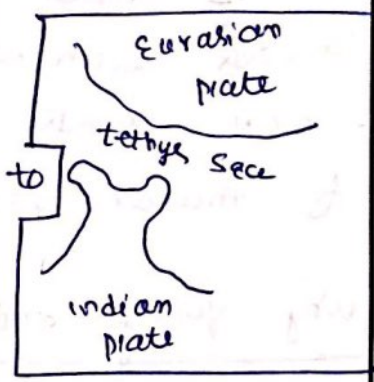 Eurasian
plate
tethys Sea
to
indian
plate